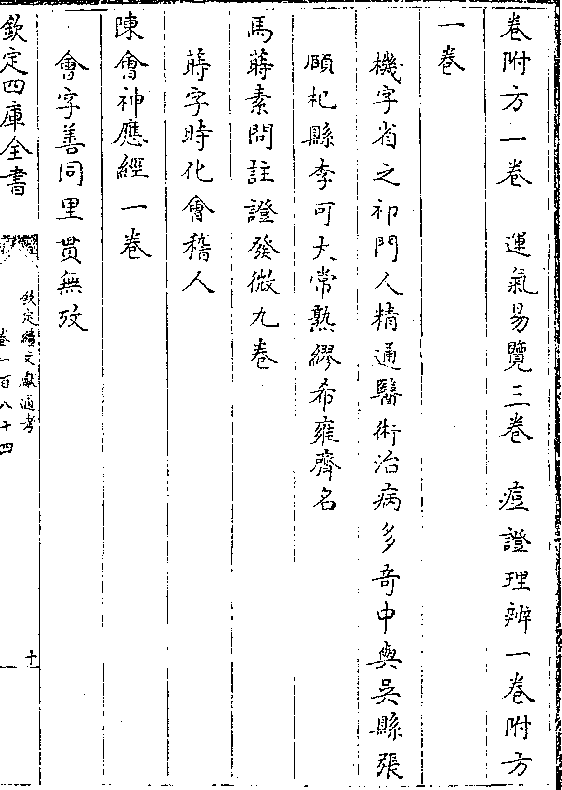 卷附方一卷　運氣易覽三卷　痘證理辨一卷附方
一卷
機字省之祁門人精通醫術治病多奇中與吳縣張
頤杞縣李可大常熟繆希雍齊名
馬蒔素問註證發微九卷
蒔字時化會稽人
陳會神應經一卷
會字善同里貫無攷
欽定四庫全書
欽定續文獻通考
卷一百八十四
十